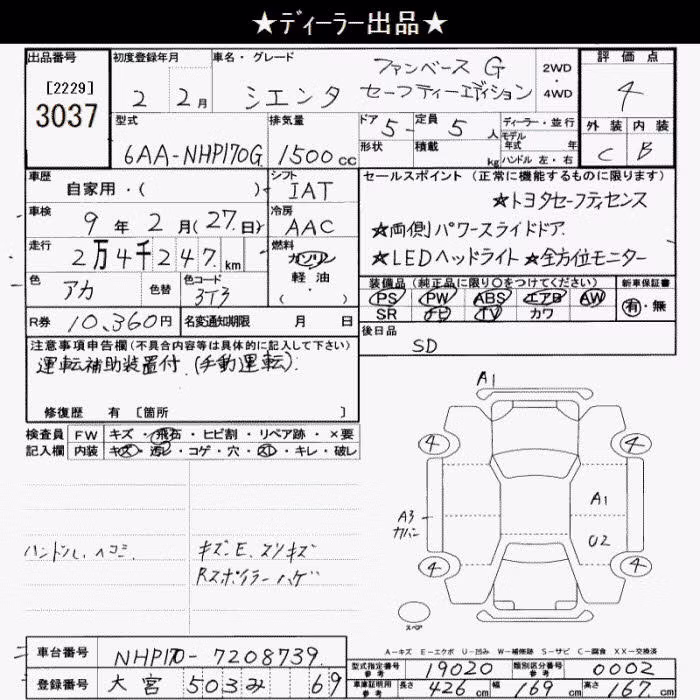 ★ディーラー出品★
出品番号
[2229]
3037
初度登録年月
2 2月
車名・グレード
シエンタ
ファンベース G
セーフティーエディション
2WD
・
4WD
評価点
4
外装 内装
C B
型式
6AA-NHP170G
排気量
1500cc
ドア 5 定員 5人
形状 積載 kg
ディーラー・並行
モデル
年式 年
ハンドル 左・右
車歴
自家用・( )
シフト
IAT
車検
9年2月(27日)
冷房
AAC
走行
2万4千247km
燃料
ガソリン
軽油
( ・ )
色
アカ
色替
色コード
3T3
R券 10,360円
名変通知期限 月 日
セールスポイント (正常に機能するものに限ります)
★トヨタセーフティセンス
★両側パワースライドドア
★LEDヘッドライト ★全方位モニター
装備品 (純正品に限り○をつけてください)
新車保証書
PS PW ABS エアB AW
SR ナビ TV カワ
有・無
後日品
SD
注意事項申告欄(不具合内容等は具体的に記入して下さい)
運転補助装置付.(手動運転).
修復歴 有 [箇所 ]
検査員
記入欄
FW キズ・飛石・ヒビ割・リペア跡・×要
内装 キズ・汚レ・コゲ・穴・スレ・キレ・破レ
ハンドル.ヘコミ.
キズ.E.スリキズ
Rスポイラーハゲ
A1
4 4
A1
A3
カバン
U2
4 4
スペア
A-キズ E-エクボ U-凹み W-補修跡 S-サビ C-腐食 XX-交換済
車台番号 NHP170-7208739.
登録番号 大宮 503 み 69
型式指定番号
参考
19020
類別区分番号
参考
0002
車庫証明用
参考
長さ 426cm 幅 169cm 高さ 167cm